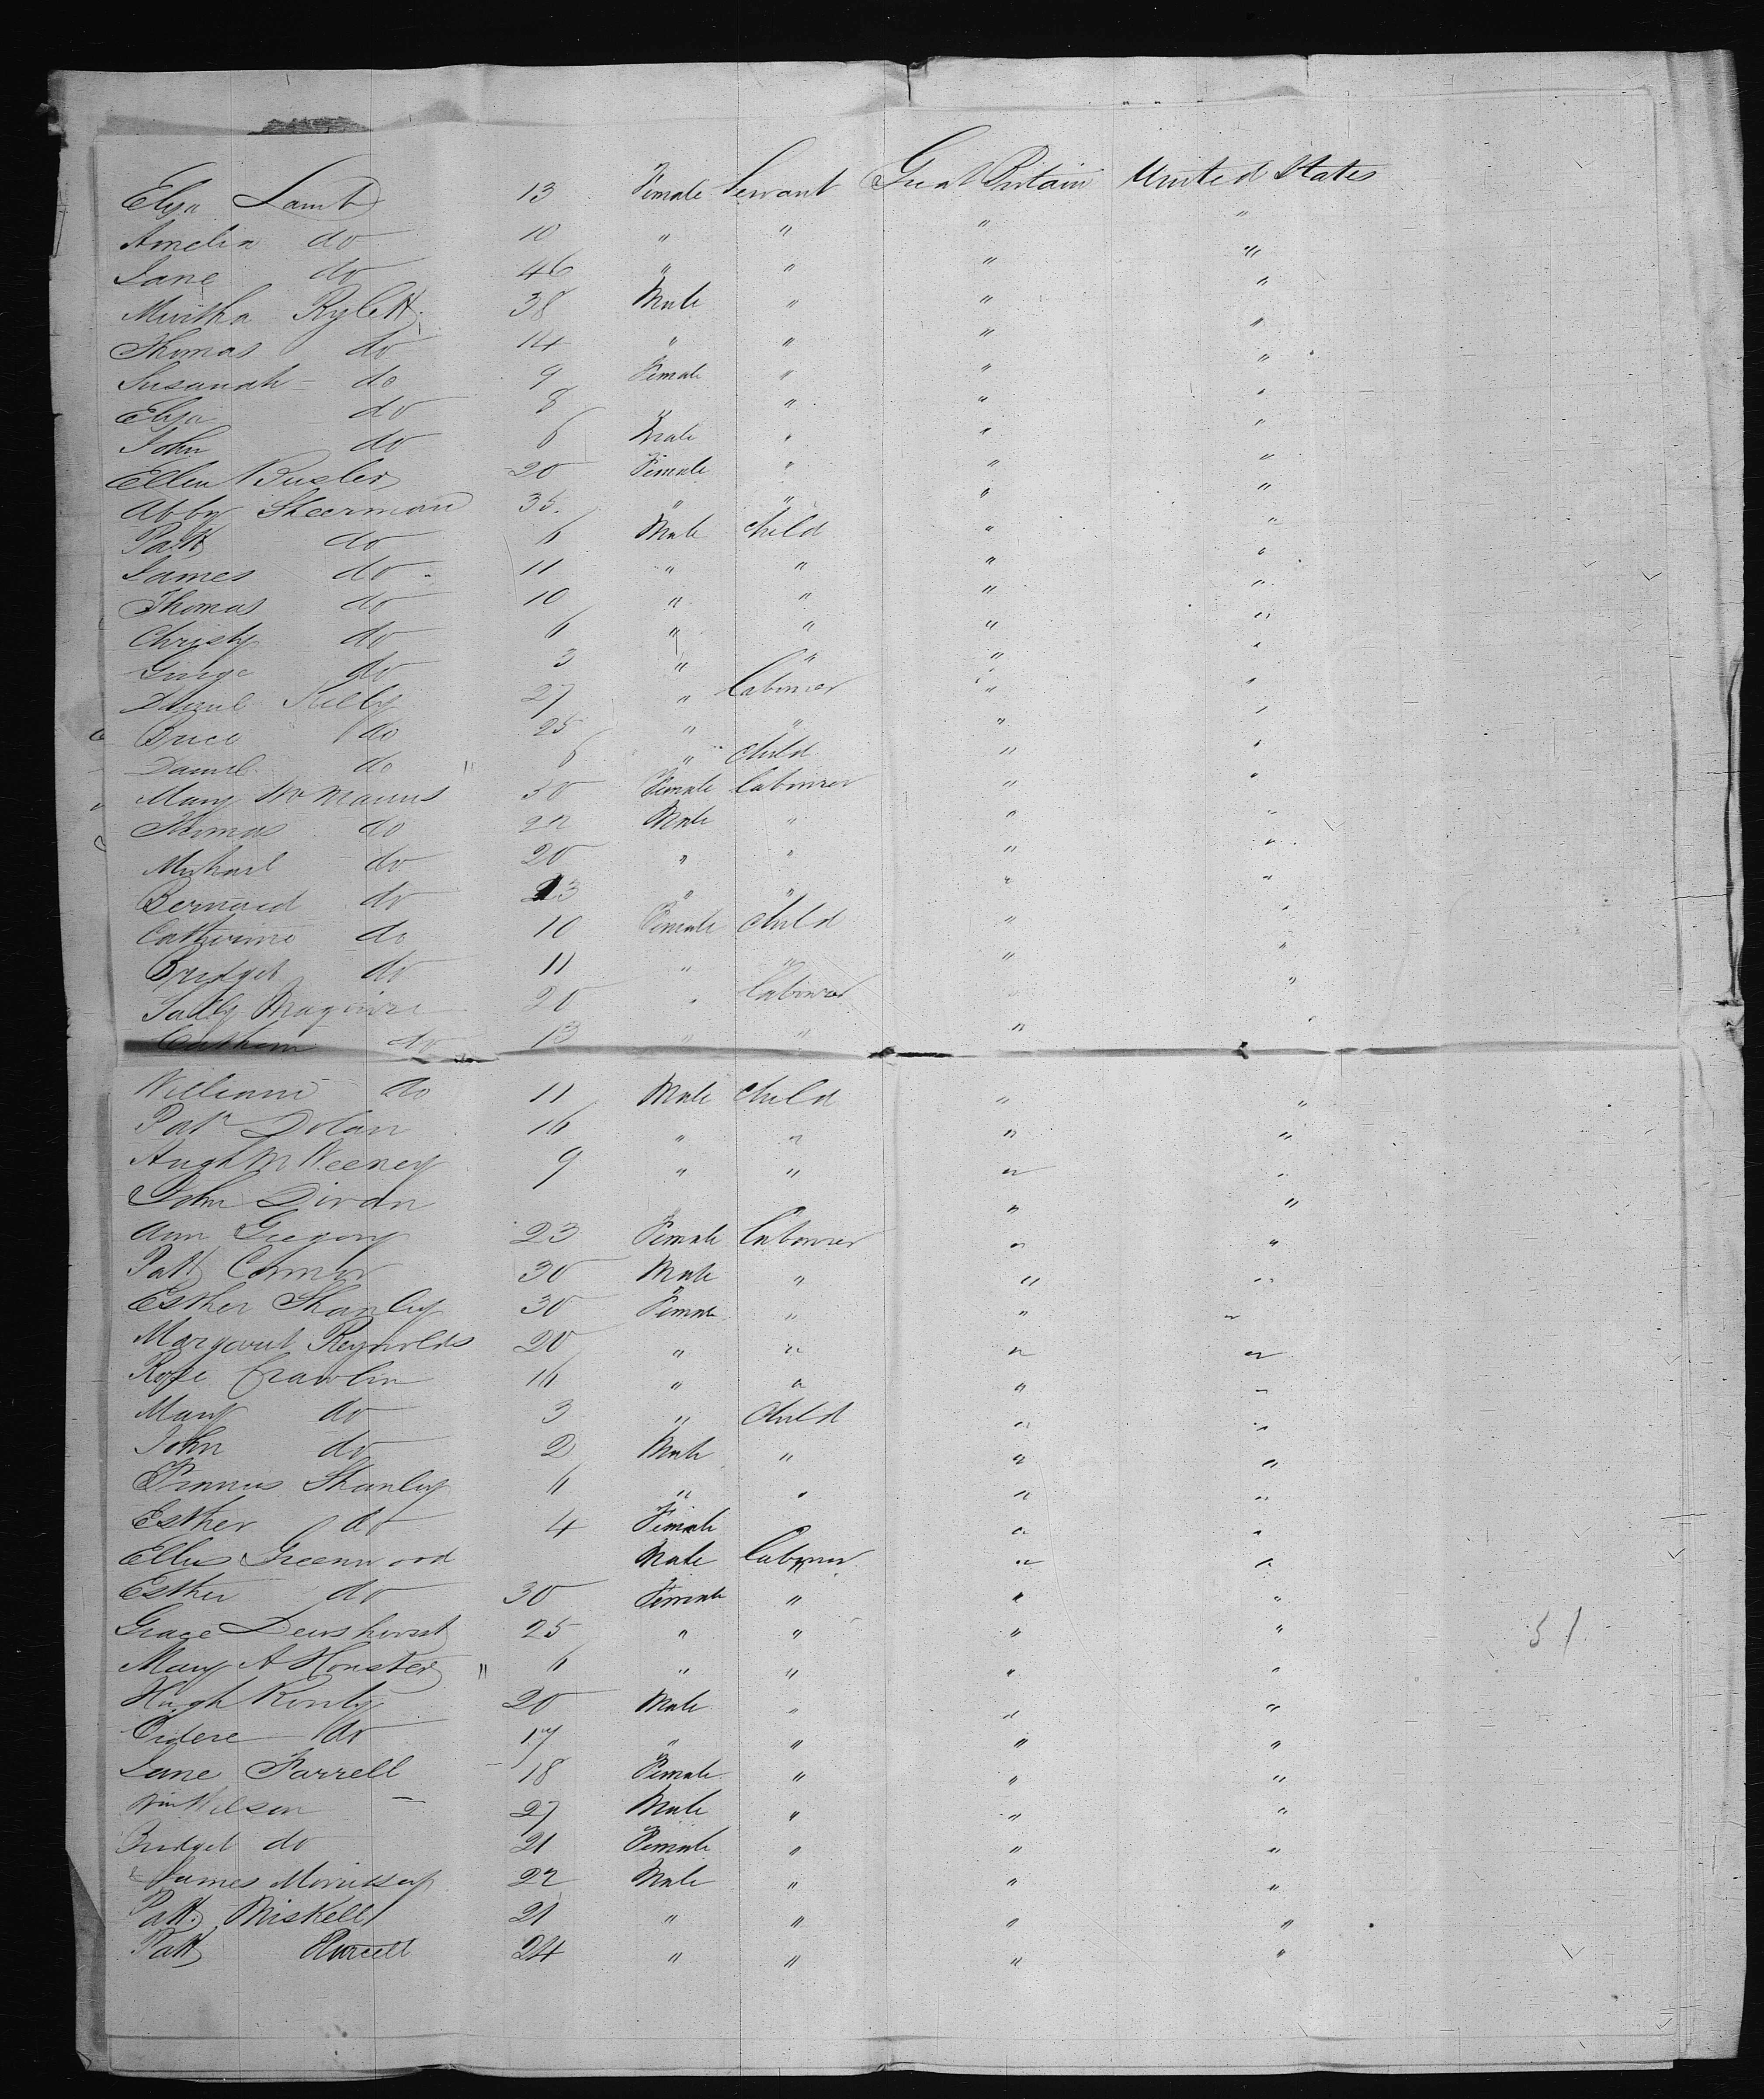 Eliza Lamb 13 Female Servant Great Britain United States
Amelia do 10 " " " "
Jane do 46 " " " "
Rylett 38 Male " " "
Thomas do 14 " " " "
Susanah do 9 Female " " "
Eliza do 8 " " "
John do 6 Male " " "
Ellen 20 Female " " "
Abby Sheerman 35 " " " "
Patt do 6 Male Child " "
James do 11 " " " "
Thomas do 10 " " " "
Christy do 6 " " " "
George do 3 " " " "
Kelly 27 " Labourer " "
do 25 " " " "
Daniel do " 6 " Child " "
Mary Mc Manus 30 Female Labourer " "
Thomas do 22 Male " " "
Michael do 20 " " " "
Bernard do 13 " " " "
Catherine do 10 Female Child " "
Bridget do 11 " " " "
Sally Maguire 20 " Labourer " "
Cathern do 13 " " " "
William do 11 Male Child " "
Patk Dolan 16 " " " "
Hugh Mc Weeney 9 " " " "
John " "
Ann Gregory 23 Female Labourer " "
Patt Connor 30 Male " " "
Esther Shanley 30 Female " " "
Margaret Reynolds 20 " " " "
Rose Crawlin 16 " " " "
Mary do 3 " Child " "
John do 2 Male " " "
Francis Shanley 6 " " " "
Esther do 4 Female " " "
Ellis Greenwood Male Labourer " "
Esther do 30 Female " " "
Grace Dewshurst 25 " " " "
Mary A " 6 " " " "
Hugh 20 Male " " "
do 17 " " " "
Jane Farrell 18 Female " " "
Wm Wilson 27 Male " " "
Bridget do 21 Female " " "
James Morrissey 22 Male " " "
Patt Miskell 21 " " " "
Patt Purcell 24 " " " "
51